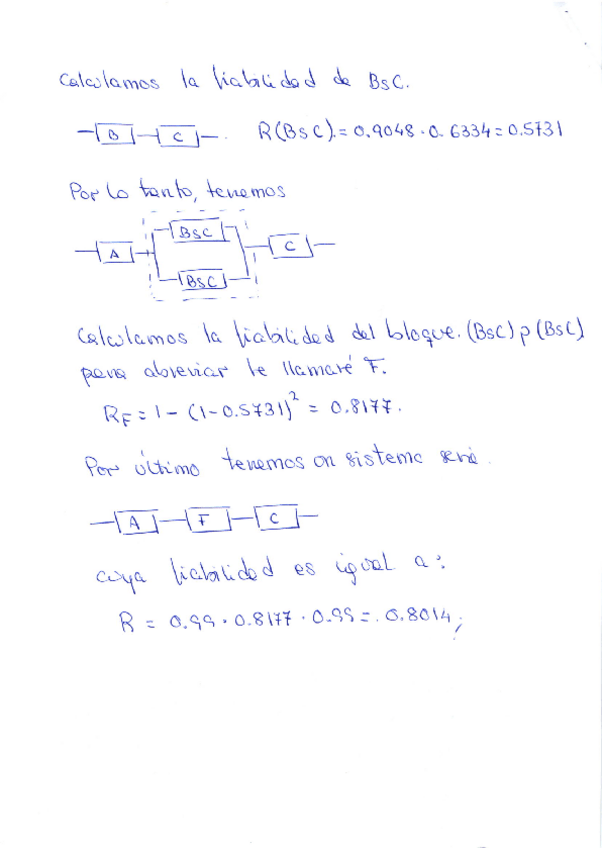 Calculamos la fiabilidad de BsC.
B C R(BsC).= 0.9048 · 0.6334 = 0.5731
Por lo tanto, tenemos
BsC
A C
BsC
Calculamos la fiabilidad del bloque. (BsC) p (BsC)
para abreviar le llamaré F.
R_F = 1 - (1-0.5731)² = 0.8177.
Por último tenemos un sistema serie.
A F C
cuya fiabilidad es igual a:
R = 0.99 · 0.8177 · 0.99 = 0.8014;